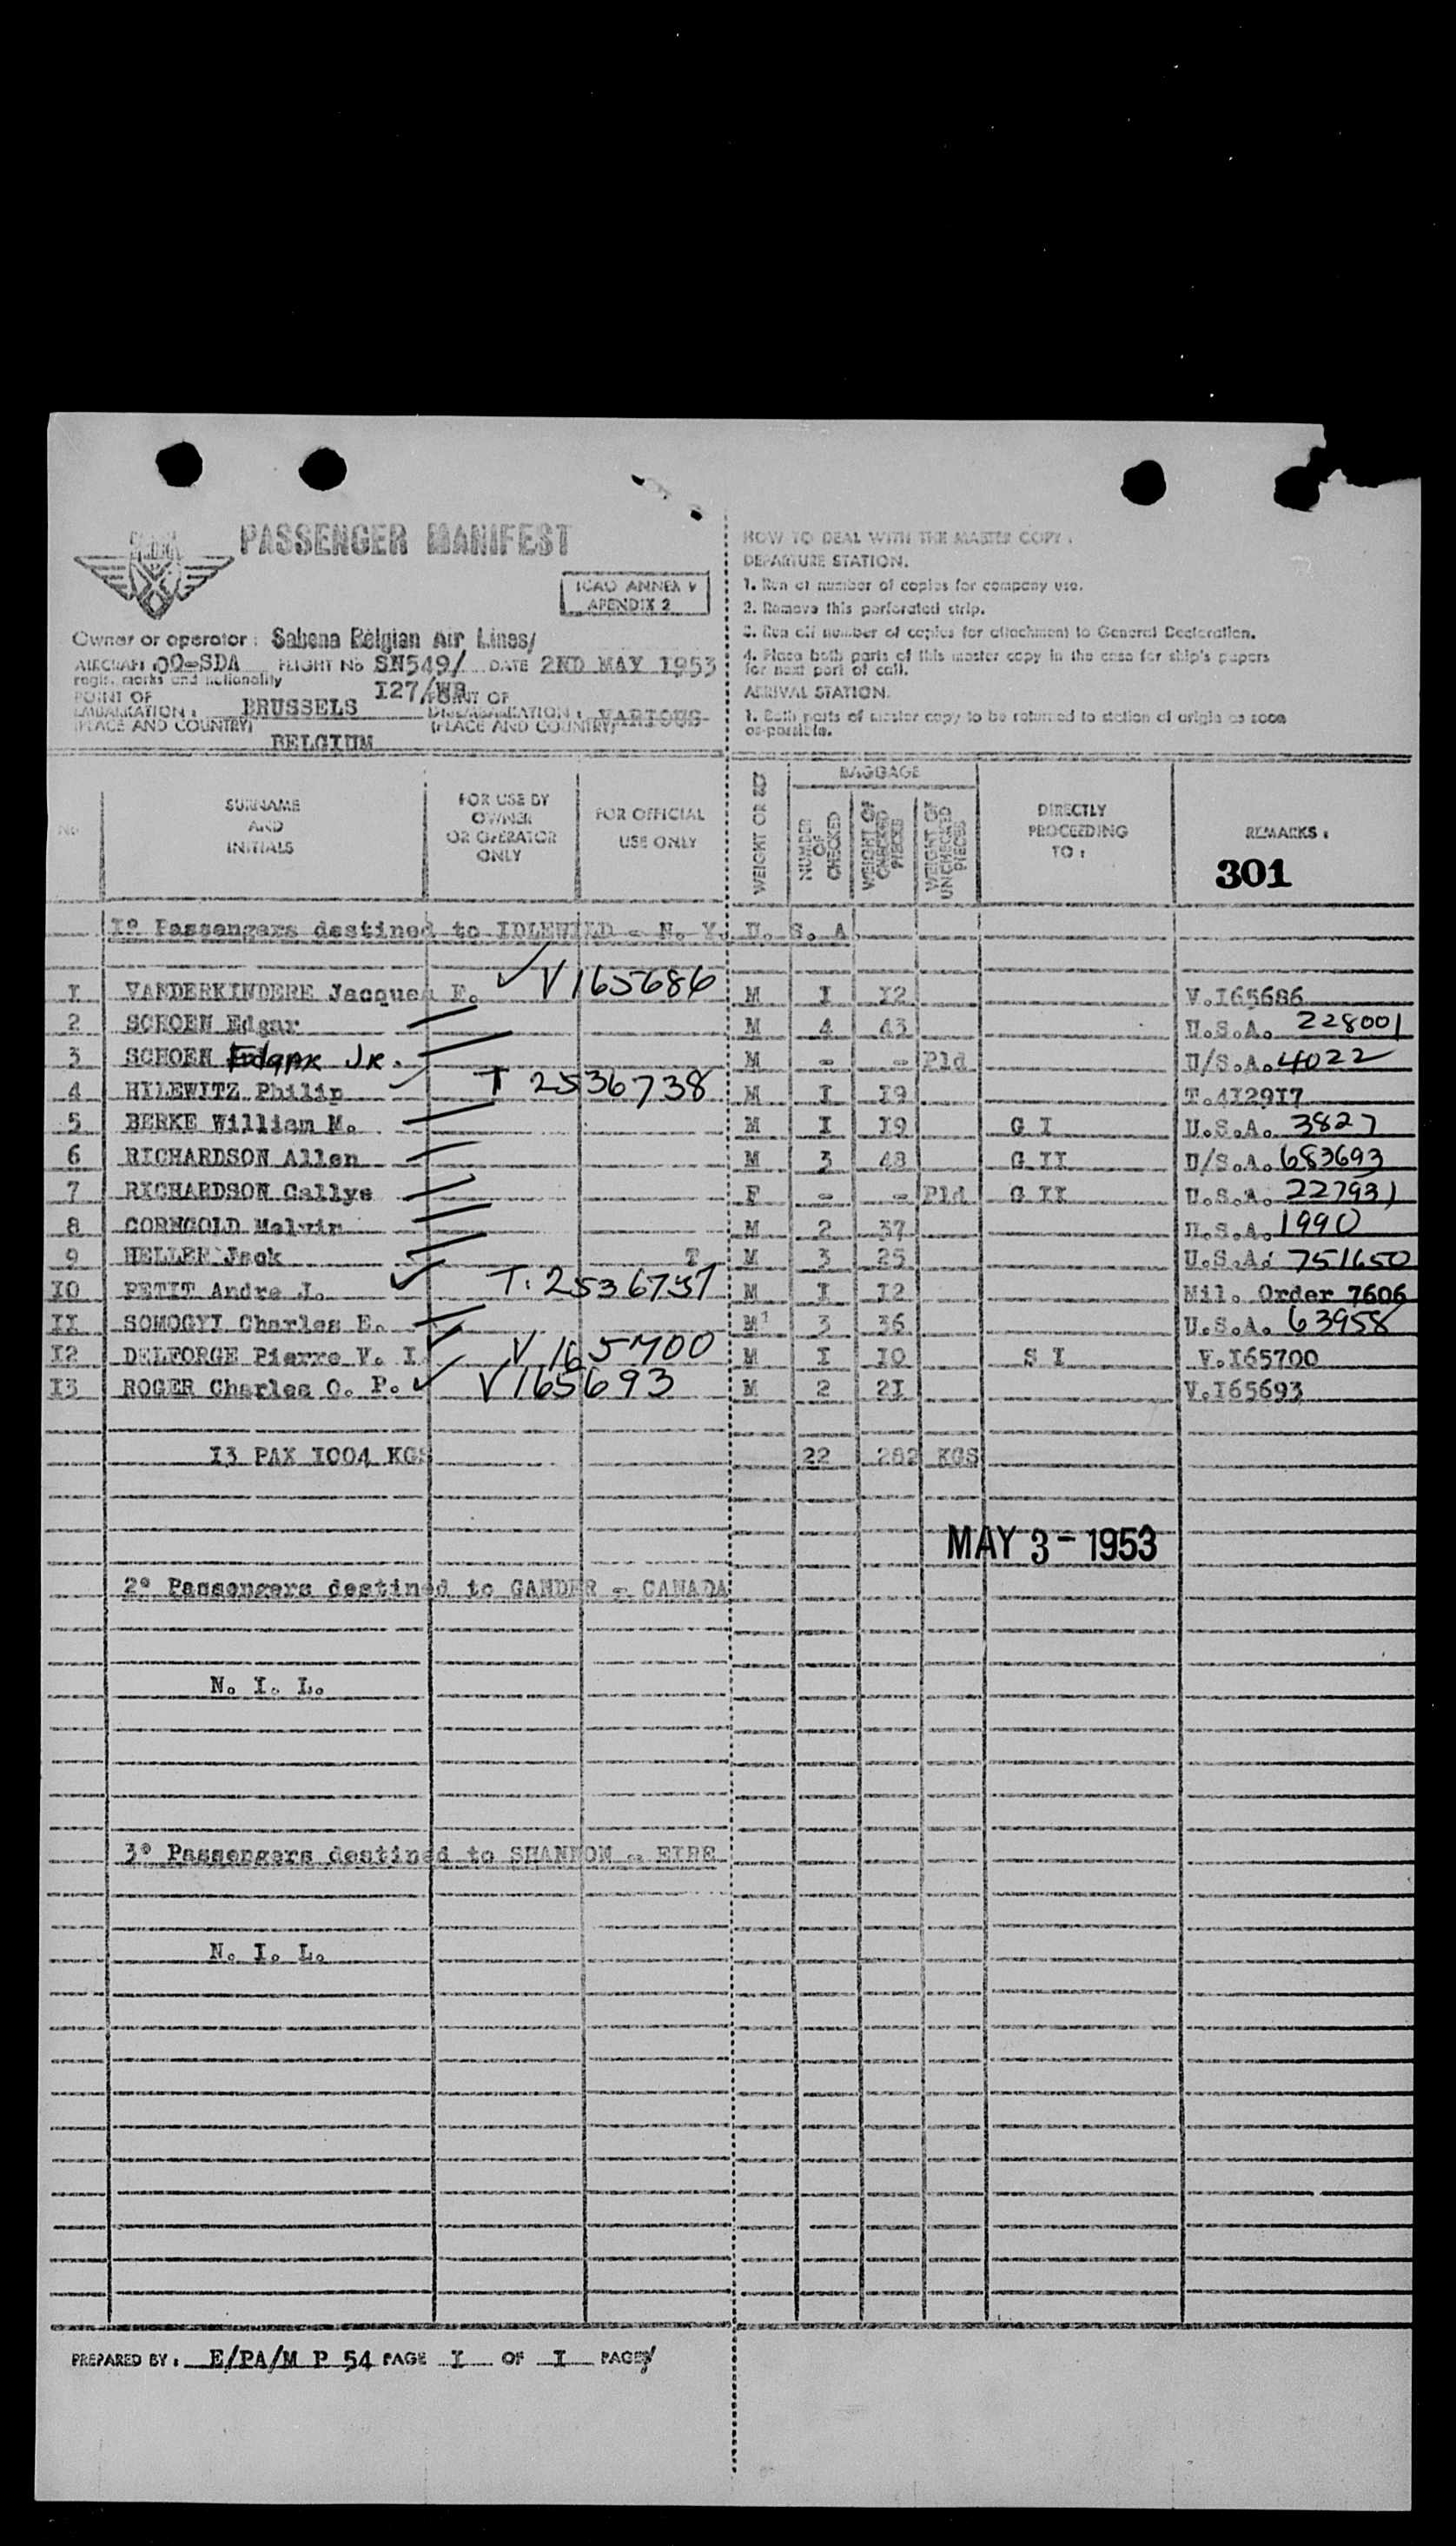 PASSENGER MANIFEST
ICAO ANNEX 9
APENDIX 2
Owner or operator : Sabena Belgian Air Lines/
AIRCRAFT OO-SDA FLIGHT No SN549/ DATE 2ND MAY 1953
regis. marks and nationality
I27/WB
POINT OF EMBARKATION : BRUSSELS POINT OF DISEMBARKATION : VARIOUS
(PLACE AND COUNTRY) BELGIUM (PLACE AND COUNTRY)
HOW TO DEAL WITH THE MASTER COPY :
DEPARTURE STATION.
1. Run of number of copies for company use.
2. Remove this perforated strip.
3. Run off number of copies for attachment to General Declaration.
4. Place both parts of this master copy in the case for ship's papers
for next port of call.
ARRIVAL STATION.
1. Both parts of master copy to be returned to station of origin as soon
as possible.
No SURNAME AND INITIALS FOR USE BY OWNER OR OPERATOR ONLY FOR OFFICIAL USE ONLY WEIGHT OR BAGGAGE NUMBER OF CHECKED WEIGHT OF CHECKED PIECES WEIGHT OF UNCHECKED PIECES DIRECTLY PROCEEDING TO : REMARKS :
301
I° Passengers destined to IDLEWILD - N. Y. U. S. A.
I VANDERKINDERE Jacques F. V165686 M I I2 V.I65686
2 SCHOEN Edgar M 4 43 U.S.A. 228001
3 SCHOEN Edgar JR. M - - Pld U/S.A. 4022
4 HILEWITZ Philip T 2536738 M I I9 T.4I29I7
5 BERKE William M. M I I9 G I U.S.A. 3827
6 RICHARDSON Allen M 3 48 G II U/S.A. 683693
7 RICHARDSON Callye F - - Pld G II U.S.A. 227931
8 CORNGOLD Melvin M 2 37 U.S.A. 1990
9 HELLER Jack T M 3 25 U.S.A. 751650
I0 PETIT Andre J. T. 2536737 M I I2 Mil. Order 7606
II SOMOGYI Charles E. M 3 36 U.S.A. 63958
I2 DELFORGE Pierre V. I V 165700 M I I0 S I V.I65700
I3 ROGER Charles O. P. V165693 M 2 2I V.I65693
I3 PAX I004 KGS 22 282 KGS
MAY 3 - 1953
2° Passengers destined to GANDER - CANADA
N. I. L.
3° Passengers destined to SHANNON - EIRE
N. I. L.
PREPARED BY : E/PA/M P 54 PAGE I OF I PAGES